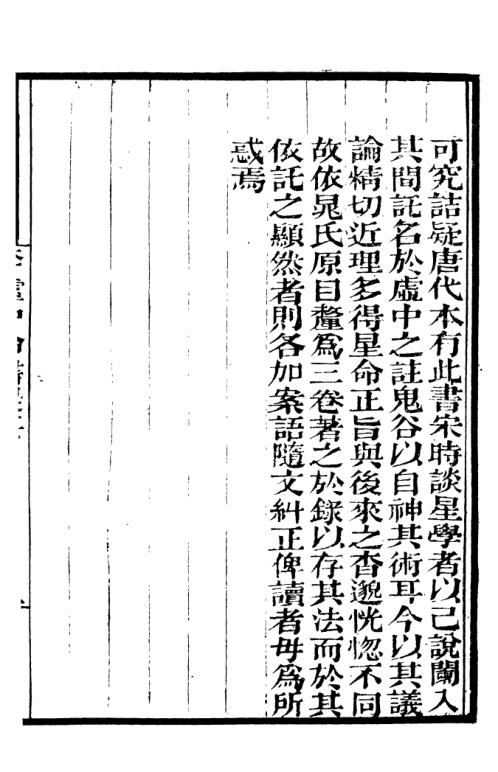 可究詰疑唐代本有此書宋時談星學者以己說闌入
其間託名於虛中之註鬼谷以自神其術耳今以其議
論精切近理多得星命正旨與後來之杳邈恍惚不同
故依晁氏原目釐爲三卷著之於錄以存其法而於其
依託之顯然者則各加案語隨文糾正俾讀者毋爲所
惑焉